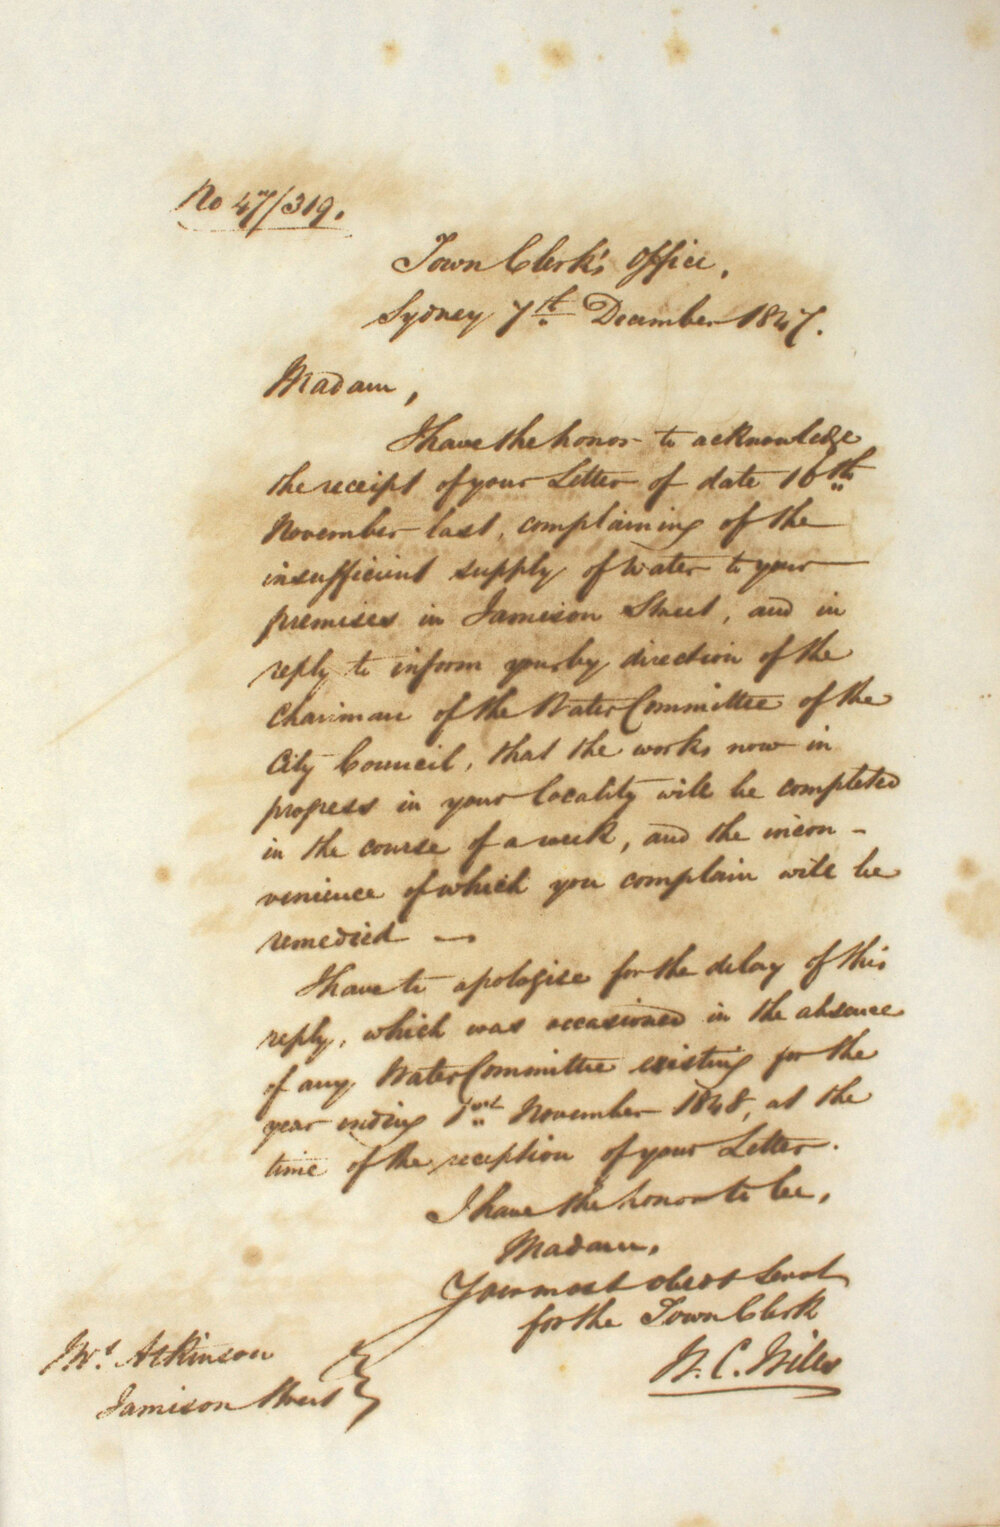 No 47/319.
Town Clerk's Office,
Sydney 7th December 1847.
Madam,
I have the honor to acknowledge
the receipt of your Letter of date 16th
November last, complaining of the
insufficient supply of Water to your
premises in Jamison Street, and in
reply to inform you by direction of the
Chairman of the Water Committee of the
City Council, that the works now in
progress in your locality will be completed
in the course of a week, and the incon-
venience of which you complain will be
remedied —
I have to apologise for the delay of this
reply, which was occasioned in the absence
of any Water Committee existing for the
year ending 1st November 1848, at the
time of the reception of your Letter.
I have the honor to be,
Madam,
Your most obedt Servt
for the Town Clerk
W. C. Wills
Mrs Atkinson
Jamison Street